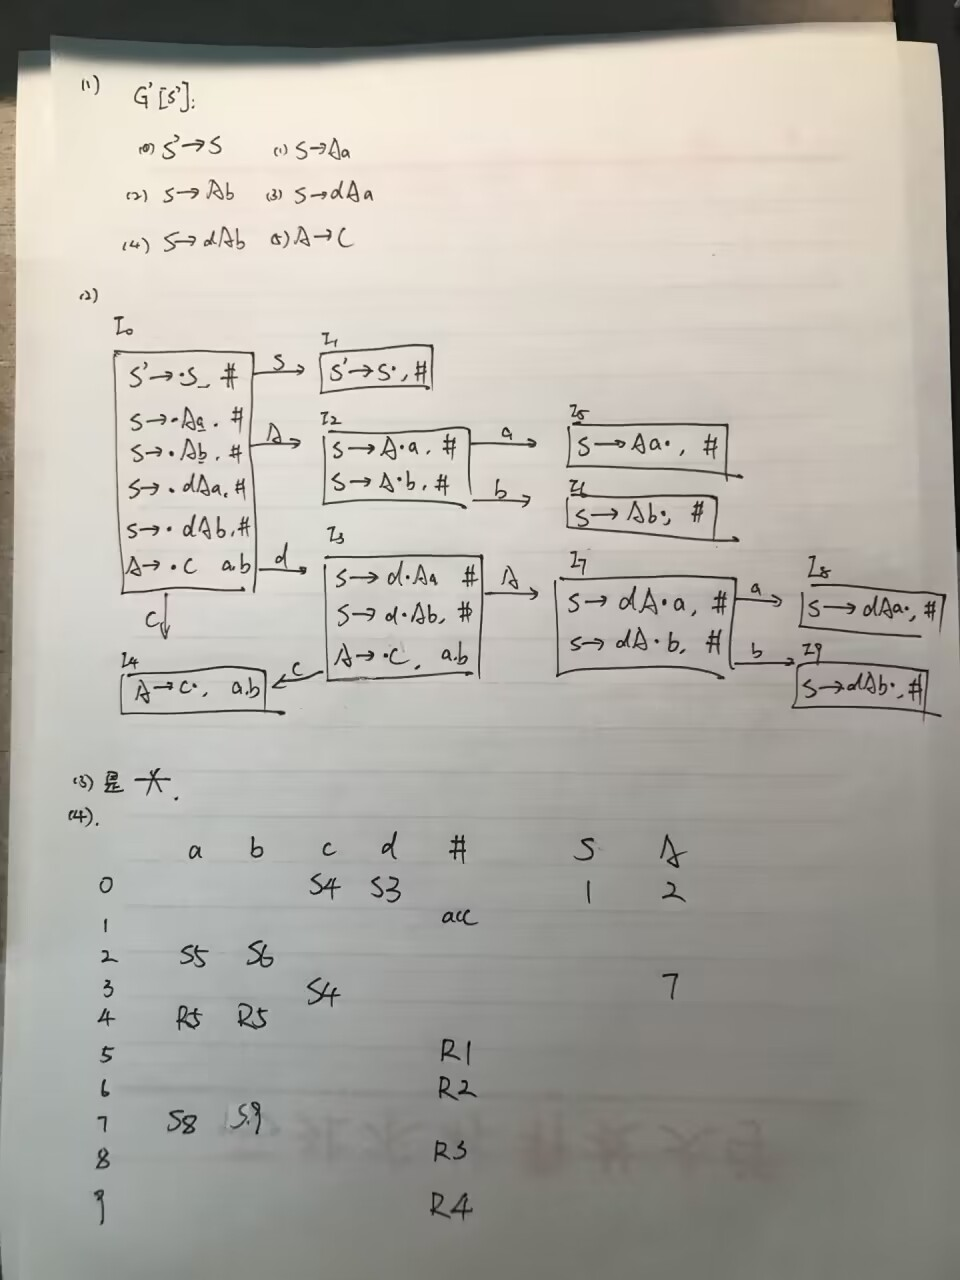 (1) G'[S']:
(0) S'→S (1) S→Aa
(2) S→Ab (3) S→dAa
(4) S→dAb (5) A→C
(2)
I0
S'→·S, #
S→·Aa, #
S→·Ab, #
S→·dAa, #
S→·dAb, #
A→·C a.b
S
I1
S'→S·, #
A
I2
S→A·a, #
S→A·b, #
a
I5
S→Aa·, #
b
I6
S→Ab·, #
d
I3
S→d·Aa #
S→d·Ab, #
A→·C, a.b
A
I7
S→dA·a, #
S→dA·b, #
a
I8
S→dAa·, #
b
I9
S→dAb·, #
C
c
I4
A→c·, a.b
(3) 是
(4).
a b c d # S A
0 S4 S3 1 2
1 acc
2 S5 S6
3 S4 7
4 R5 R5
5 R1
6 R2
7 S8 S9
8 R3
9 R4